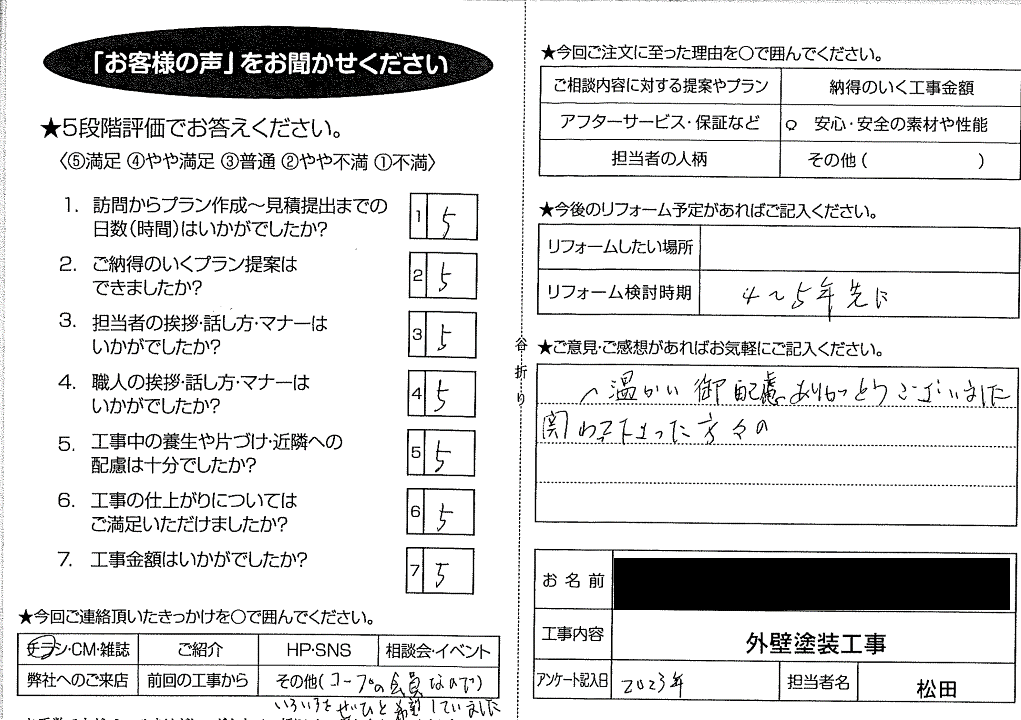 「お客様の声」をお聞かせください
★5段階評価でお答えください。
〈⑤満足 ④やや満足 ③普通 ②やや不満 ①不満〉
1. 訪問からプラン作成～見積提出までの
日数(時間)はいかがでしたか?
1 5
2. ご納得のいくプラン提案は
できましたか?
2 5
3. 担当者の挨拶・話し方・マナーは
いかがでしたか?
3 5
4. 職人の挨拶・話し方・マナーは
いかがでしたか?
4 5
5. 工事中の養生や片づけ・近隣への
配慮は十分でしたか?
5 5
6. 工事の仕上がりについては
ご満足いただけましたか?
6 5
7. 工事金額はいかがでしたか?
7 5
★今回ご連絡頂いたきっかけを○で囲んでください。
チラシ・CM・雑誌 ご紹介 HP・SNS 相談会・イベント
弊社へのご来店 前回の工事から その他(コープの会員なので)
谷折り
★今回ご注文に至った理由を○で囲んでください。
ご相談内容に対する提案やプラン 納得のいく工事金額
アフターサービス・保証など ○ 安心・安全の素材や性能
担当者の人柄 その他( )
★今後のリフォーム予定があればご記入ください。
リフォームしたい場所
リフォーム検討時期 4～5年先に
★ご意見・ご感想があればお気軽にご記入ください。
温かい御配慮ありがとうございました
関わって下さった方々の
お名前
工事内容 外壁塗装工事
アンケート記入日 2023年 担当者名 松田